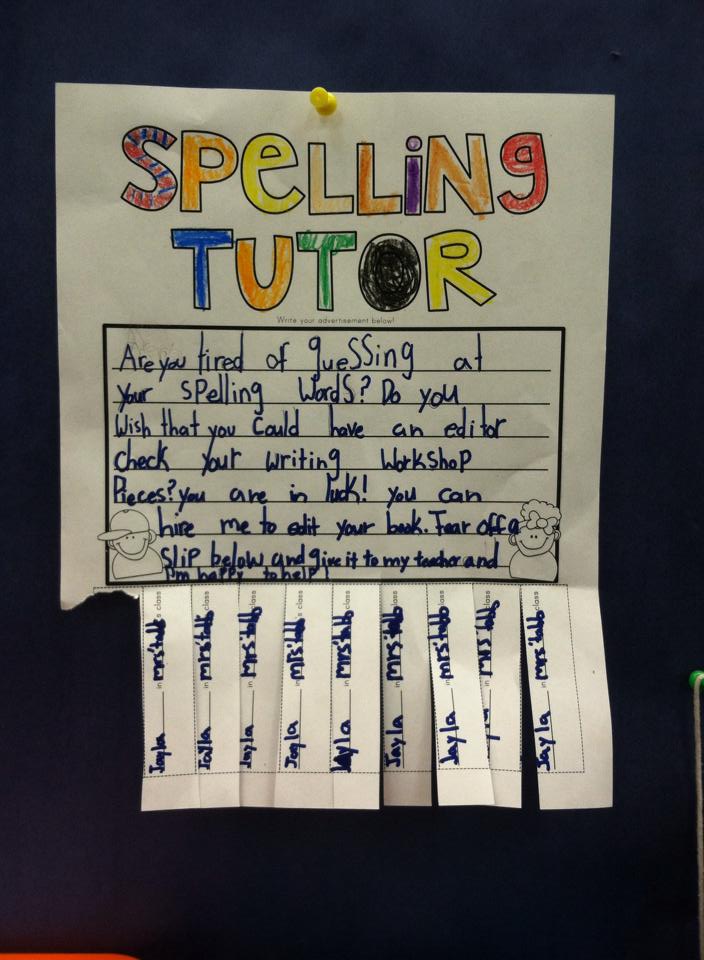 SPeLLiNg
TUTOR
Write your advertisement below!
Are you tired of gueSSing at
your spelling words? Do you
Wish that you could have an editor
check your writing workshop
Pieces? you are in luck! you can
hire me to edit your book. Tear off a
slip below and give it to my teacher and
I'm happy to help!
Jayla in mrs'tabb's class
Jayla in mrs'tabb class
Jayla in mrs'tabb class
Jayla in mrs'tabb class
Jayla in mrs'tabb class
Jayla in mrs'tabb class
Jayla in mrs'tabb class
in mrs'tabb class
Jayla in mrs'tabb class